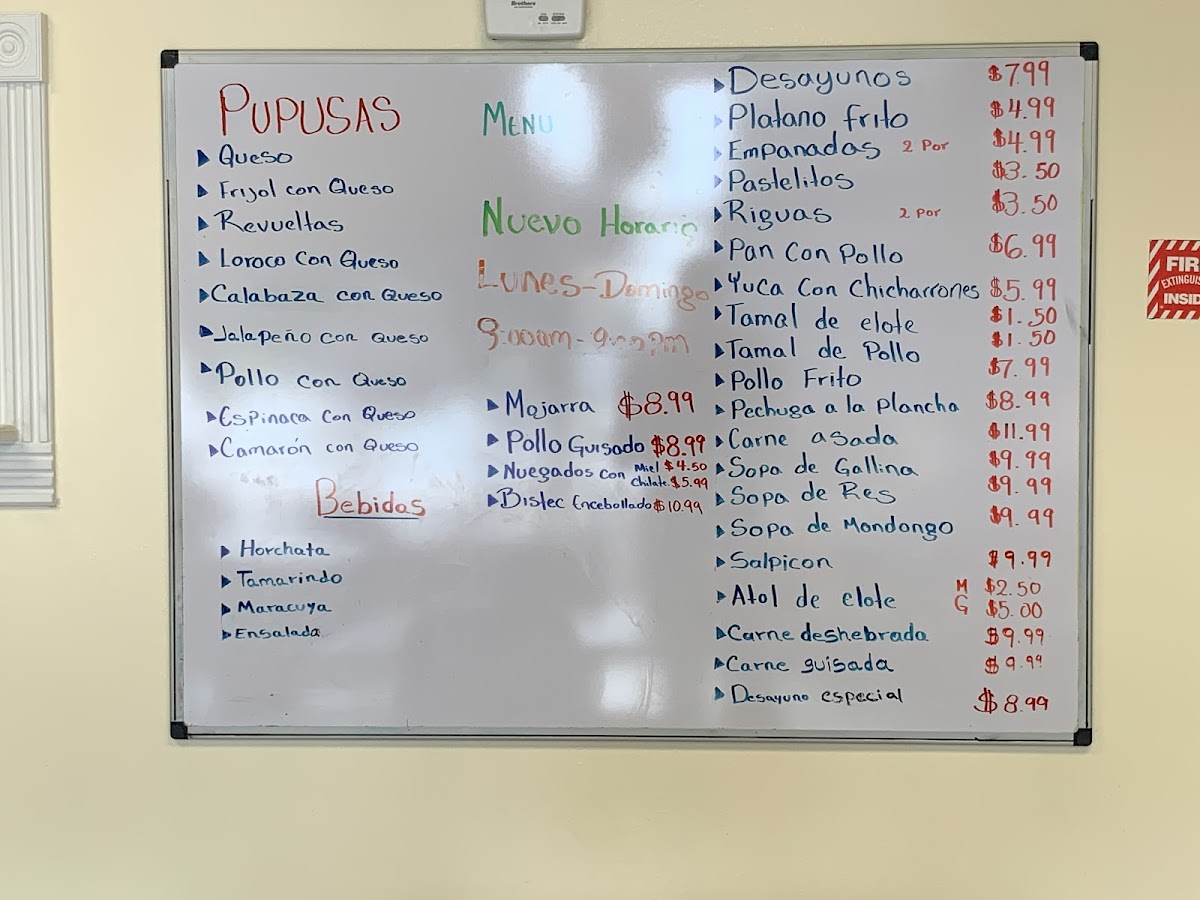 Brothers
PUPUSAS
Queso
Frijol con Queso
Revueltas
Loroco Con Queso
Calabaza con Queso
Jalapeño con Queso
Pollo con Queso
Espinaca con Queso
Camarón con Queso
Bebidas
Horchata
Tamarindo
Maracuya
Ensalada
MENU
Nuevo Horario
Lunes-Domingo
9:00am-9:00PM
Mojarra $8.99
Pollo Guisado $8.99
Nuegados con Miel $4.50
Chilate $5.99
Bistec Encebollado $10.99
Desayunos $7.99
Platano frito $4.99
Empanadas 2 Por $4.99
Pastelitos $3.50
Riguas 2 Por $3.50
Pan Con Pollo $6.99
Yuca Con Chicharrones $5.99
Tamal de elote $1.50
Tamal de Pollo $1.50
Pollo Frito $7.99
Pechuga a la Plancha $8.99
Carne asada $11.99
Sopa de Gallina $9.99
Sopa de Res $9.99
Sopa de Mondongo $9.99
Salpicon $9.99
Atol de elote M $2.50
G $5.00
Carne deshebrada $9.99
Carne guisada $9.99
Desayuno especial $8.99
FIR
EXTINGUIS
INSID